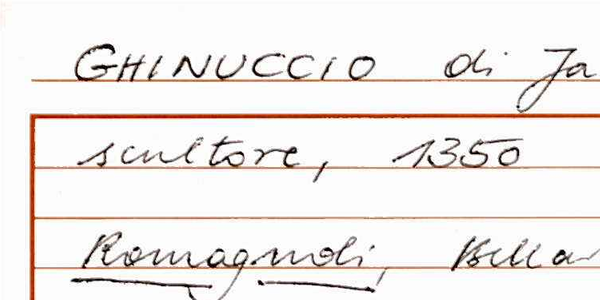 GHINUCCIO di Ja
scultore, 1350
Romagnoli, Bellar